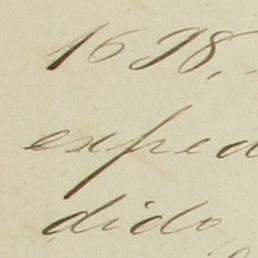 1698,
exped
dido